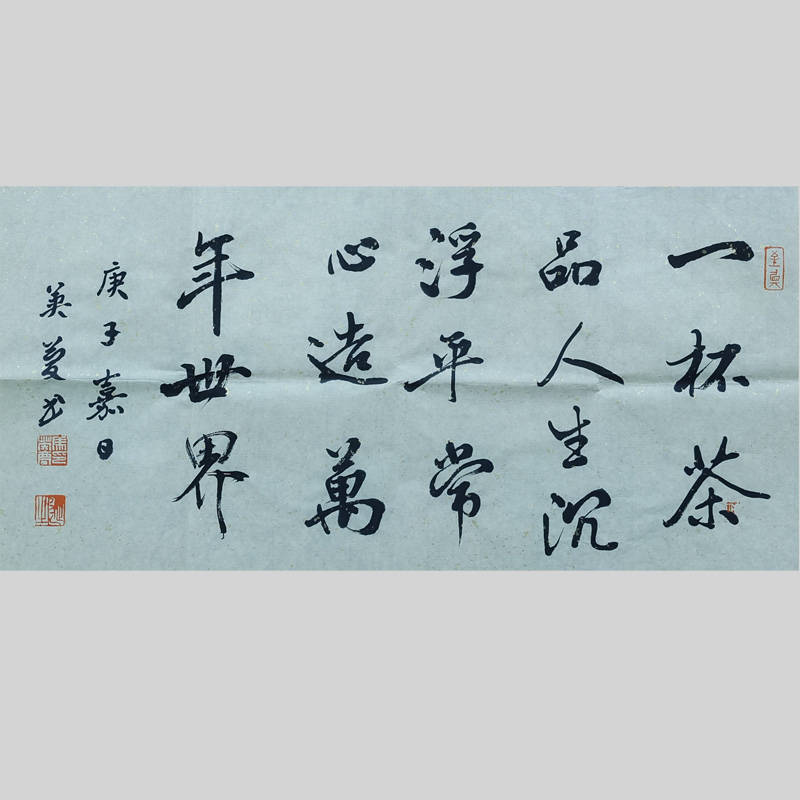 一杯茶
品人生沉
浮平常
心造萬
年世界
庚子嘉日
英蔓书